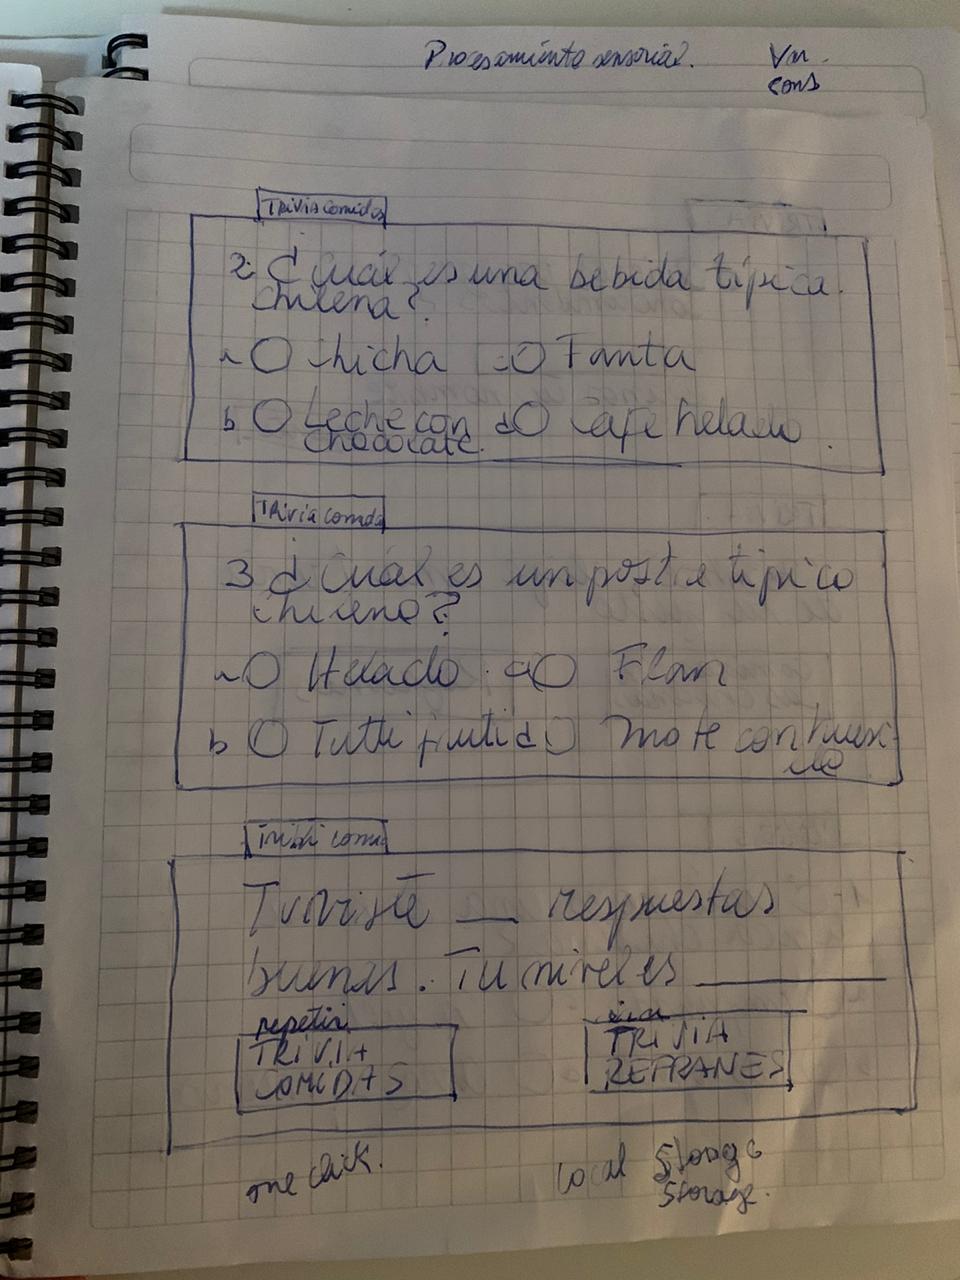 Procesamiento sensorial.
cons
Trivia comidas
2 ¿Cuál es una bebida típica
chilena?
a ○ chicha ○ Fanta
b ○ Leche con d ○ Café helado.
chocolate.
Trivia comida
3 ¿Cuál es un postre típico
chileno?
a ○ Helado. c ○ Flan
b ○ Tutti fruti d ○ mote con huesi
Tuviste __ respuestas
buenas. Tu nivel es ______
repetir
TRIVIA
COMIDAS
TRIVIA
REFRANES
one click.
local
Storage.